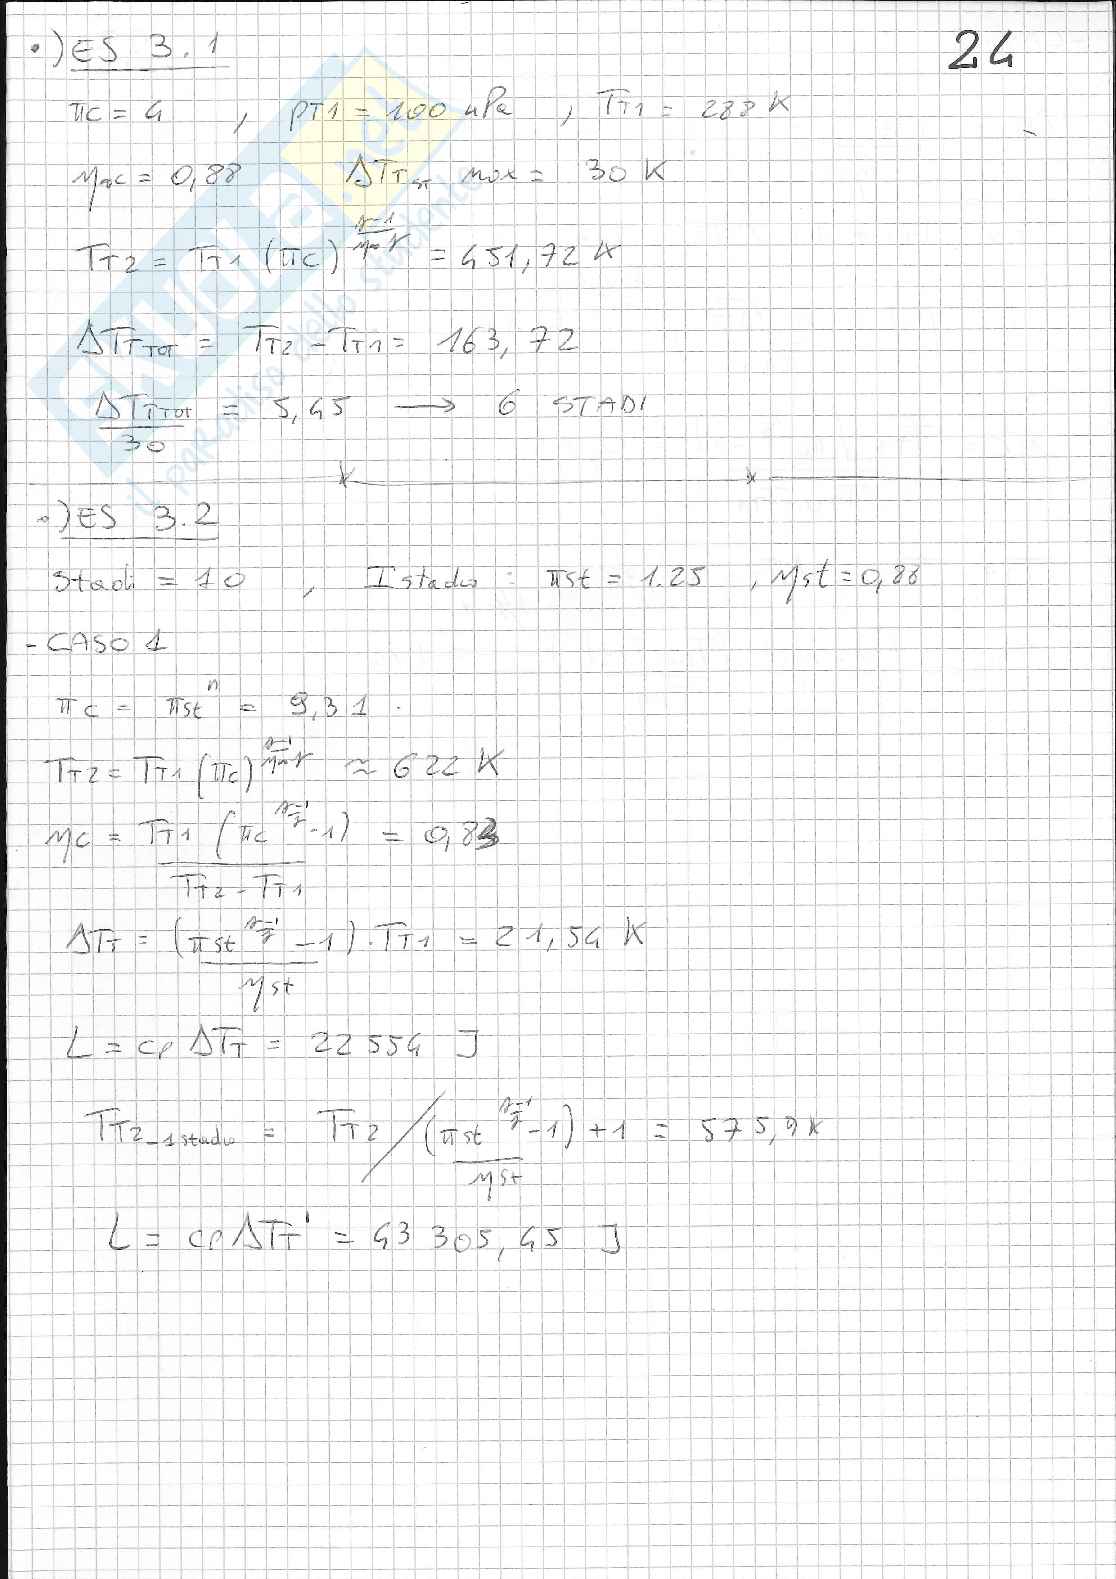 24
•) ES 3.1
πc = 4 , pT1 = 100 kPa , TT1 = 288 K
η∞c = 0,88 ΔTTst max = 30 K
TT2 = TT1 (πc)^((γ-1)/(η∞ γ)) = 451,72 K
ΔTTTOT = TT2 - TT1 = 163,72
ΔTTTOT / 30 = 5,45 → 6 STADI
•) ES 3.2
Stadi = 10 , I stadio : πst = 1.25 , ηst = 0,86
- CASO 1
πc = πst^n = 9,31
TT2 = TT1 (πc)^((γ-1)/(η∞ γ)) ≈ 622 K
ηc = TT1 (πc^((γ-1)/γ) - 1) / (TT2 - TT1) = 0,83
ΔTT = (πst^((γ-1)/γ) - 1) / ηst · TT1 = 21,54 K
L = cp ΔTT = 22 554 J
TT2-1stadio = TT2 / (πst^((γ-1)/γ) - 1) / ηst + 1 = 575,9 K
L = cp ΔTT' = 43 305,45 J
skuola.net
il paradiso dello studente